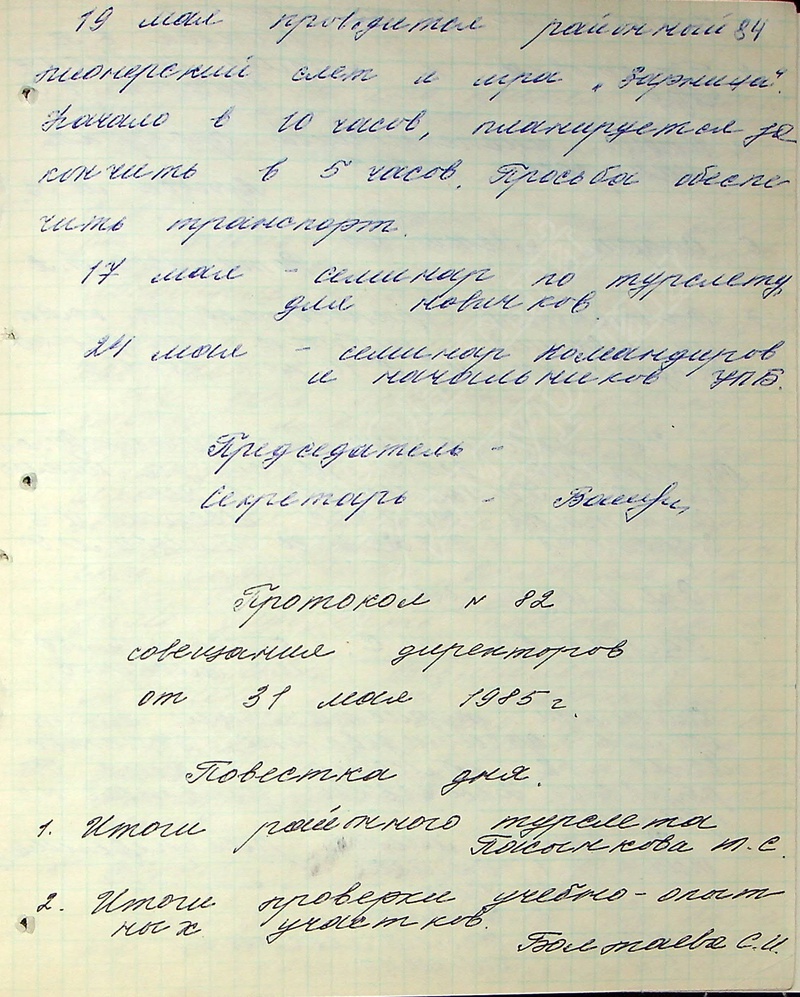 84
19 мая проводится районный
пионерский слет и игра „Зарница".
Начало в 10 часов, планируется за
кончить в 5 часов. Просьба обеспе
чить транспорт.
17 мая - семинар по турслету
для новичков.
24 мая - семинар командиров
и начальников УПБ.
Председатель -
Секретарь -
Протокол № 82
совещания директоров
от 31 мая 1985 г.
Повестка дня.
1. Итоги районного турслета
Пасынкова Т. С.
2. Итоги проверки учебно-опыт
ных участков.
Болтаева С.И.